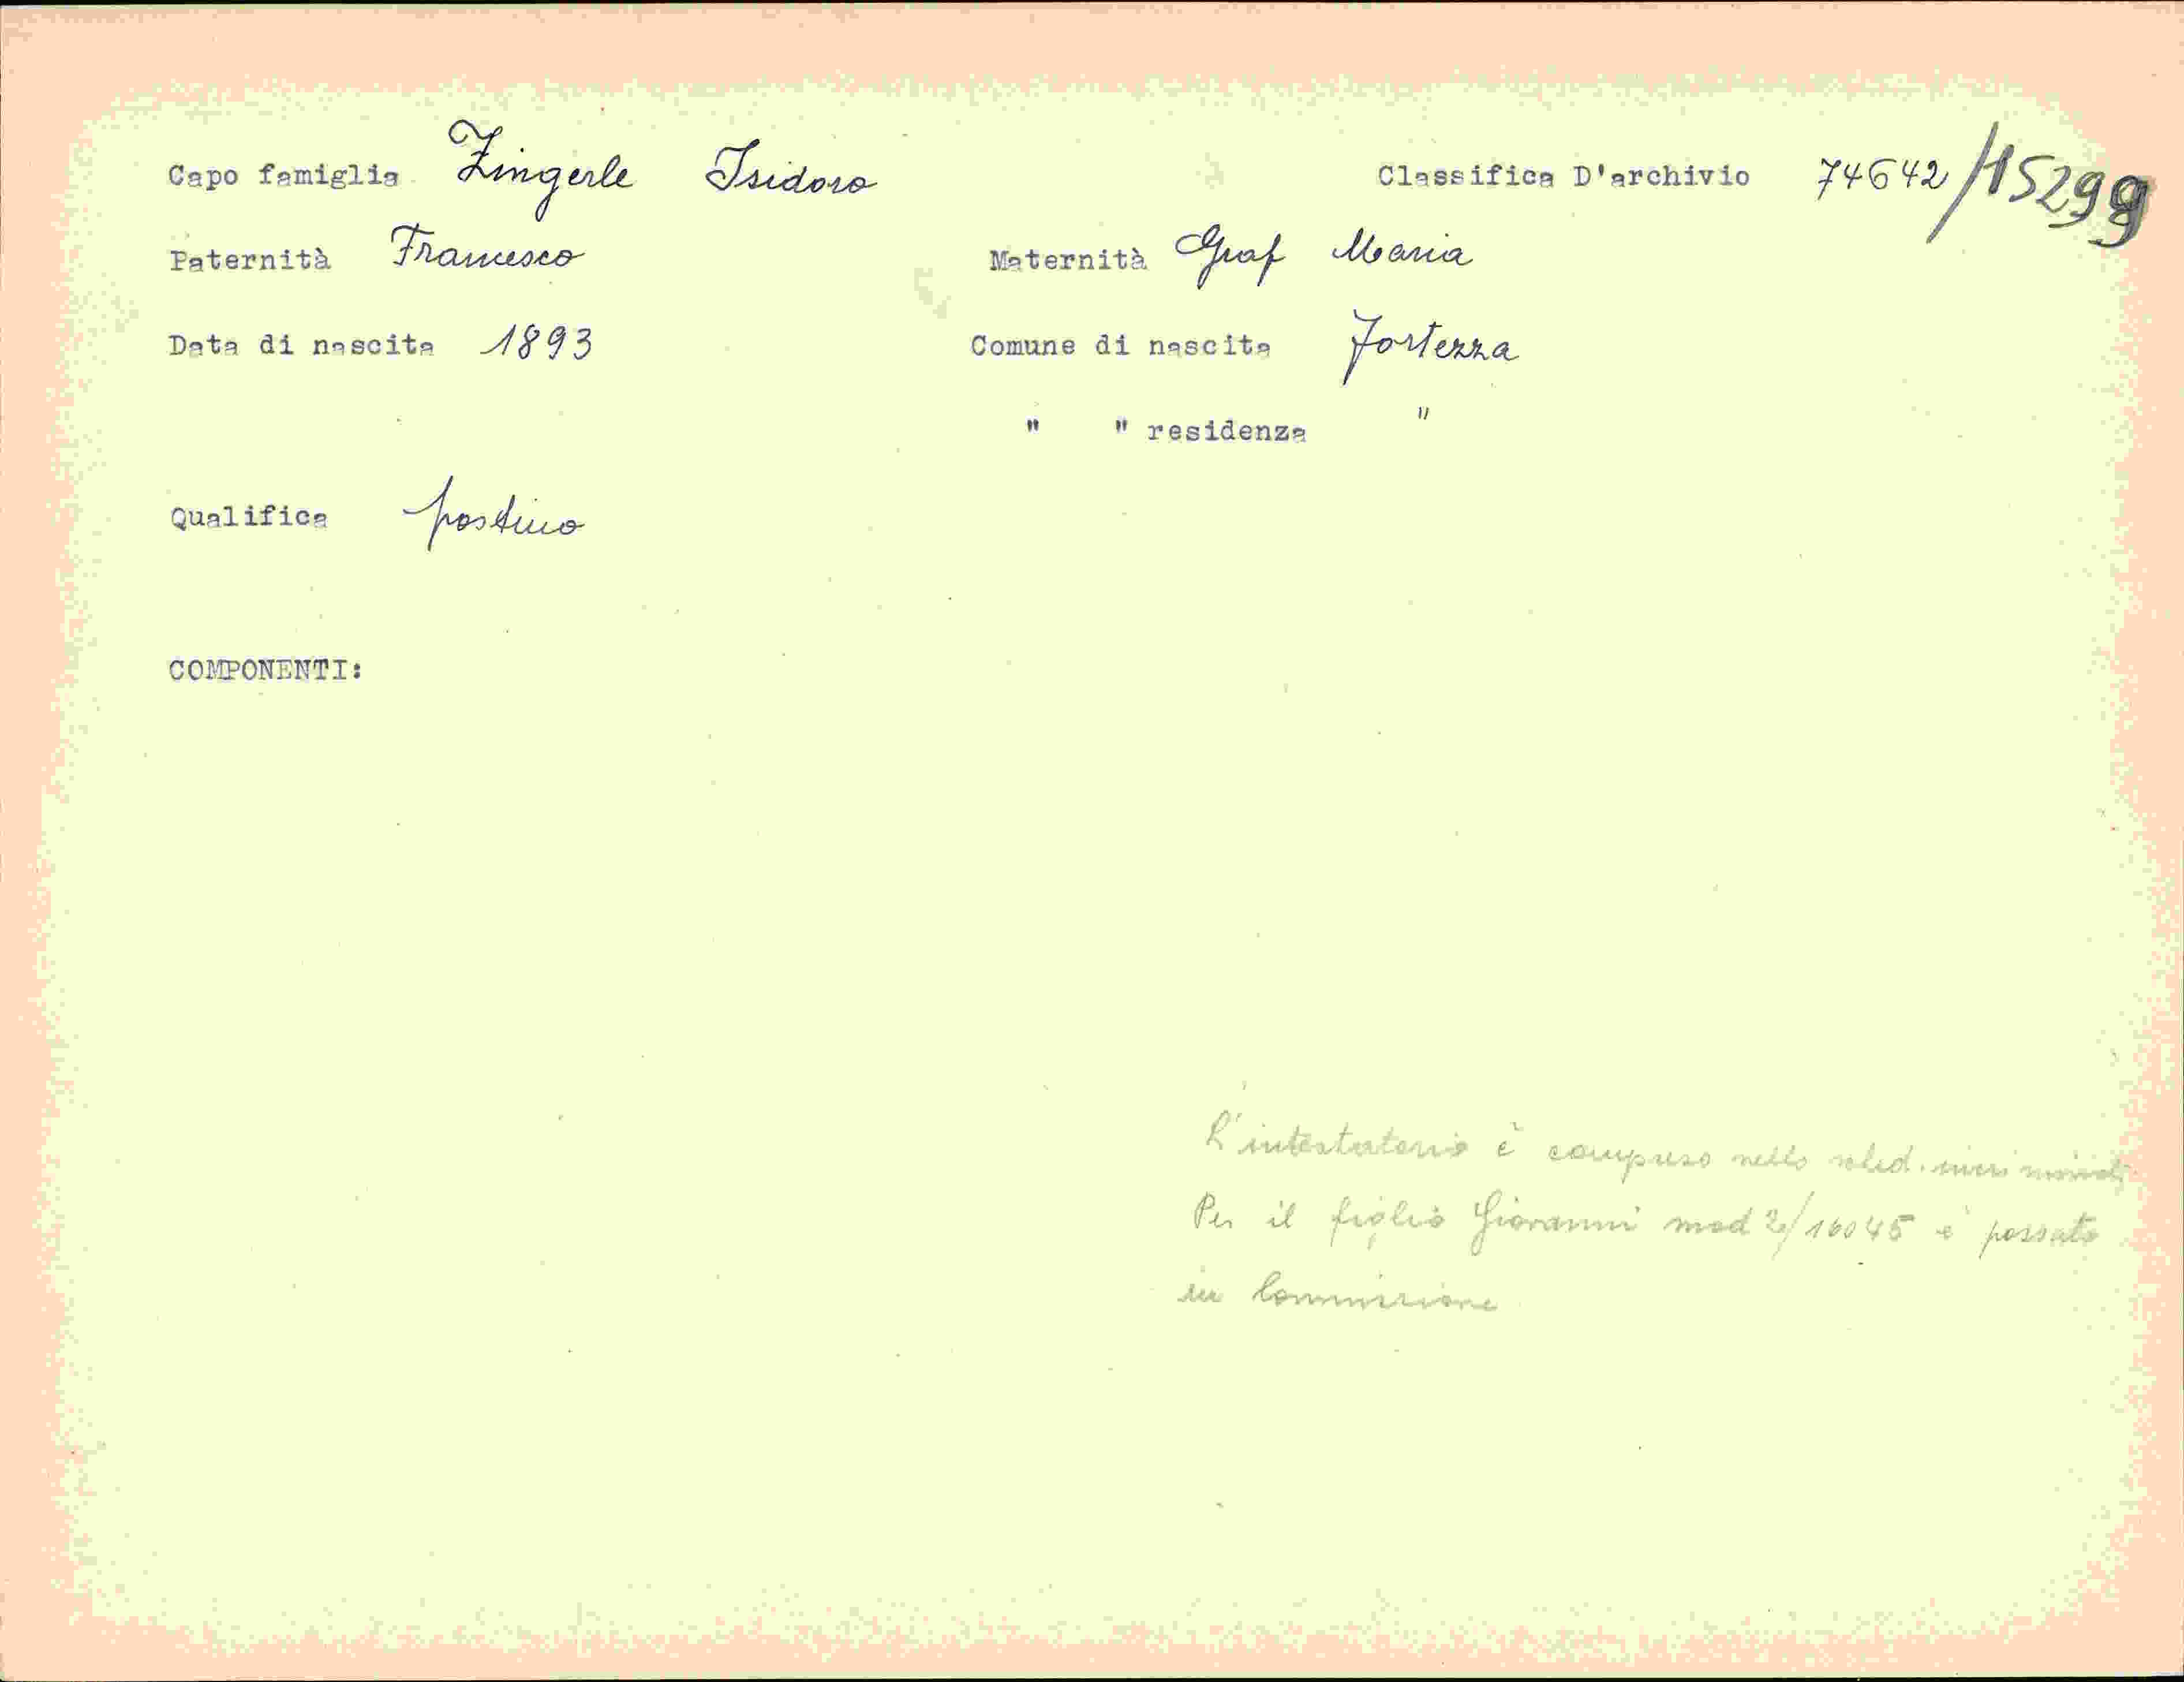 Capo famiglia Zingerle Isidoro Classifica D'archivio 74642/15299
Paternità Francesco Maternità Graf Maria
Data di nascita 1893 Comune di nascita Fortezza
" " residenza "
Qualifica postino
COMPONENTI:
L'intestatario è compreso nello sched.
Per il figlio Giovanni mod 2/16045 è passato
in Commissione